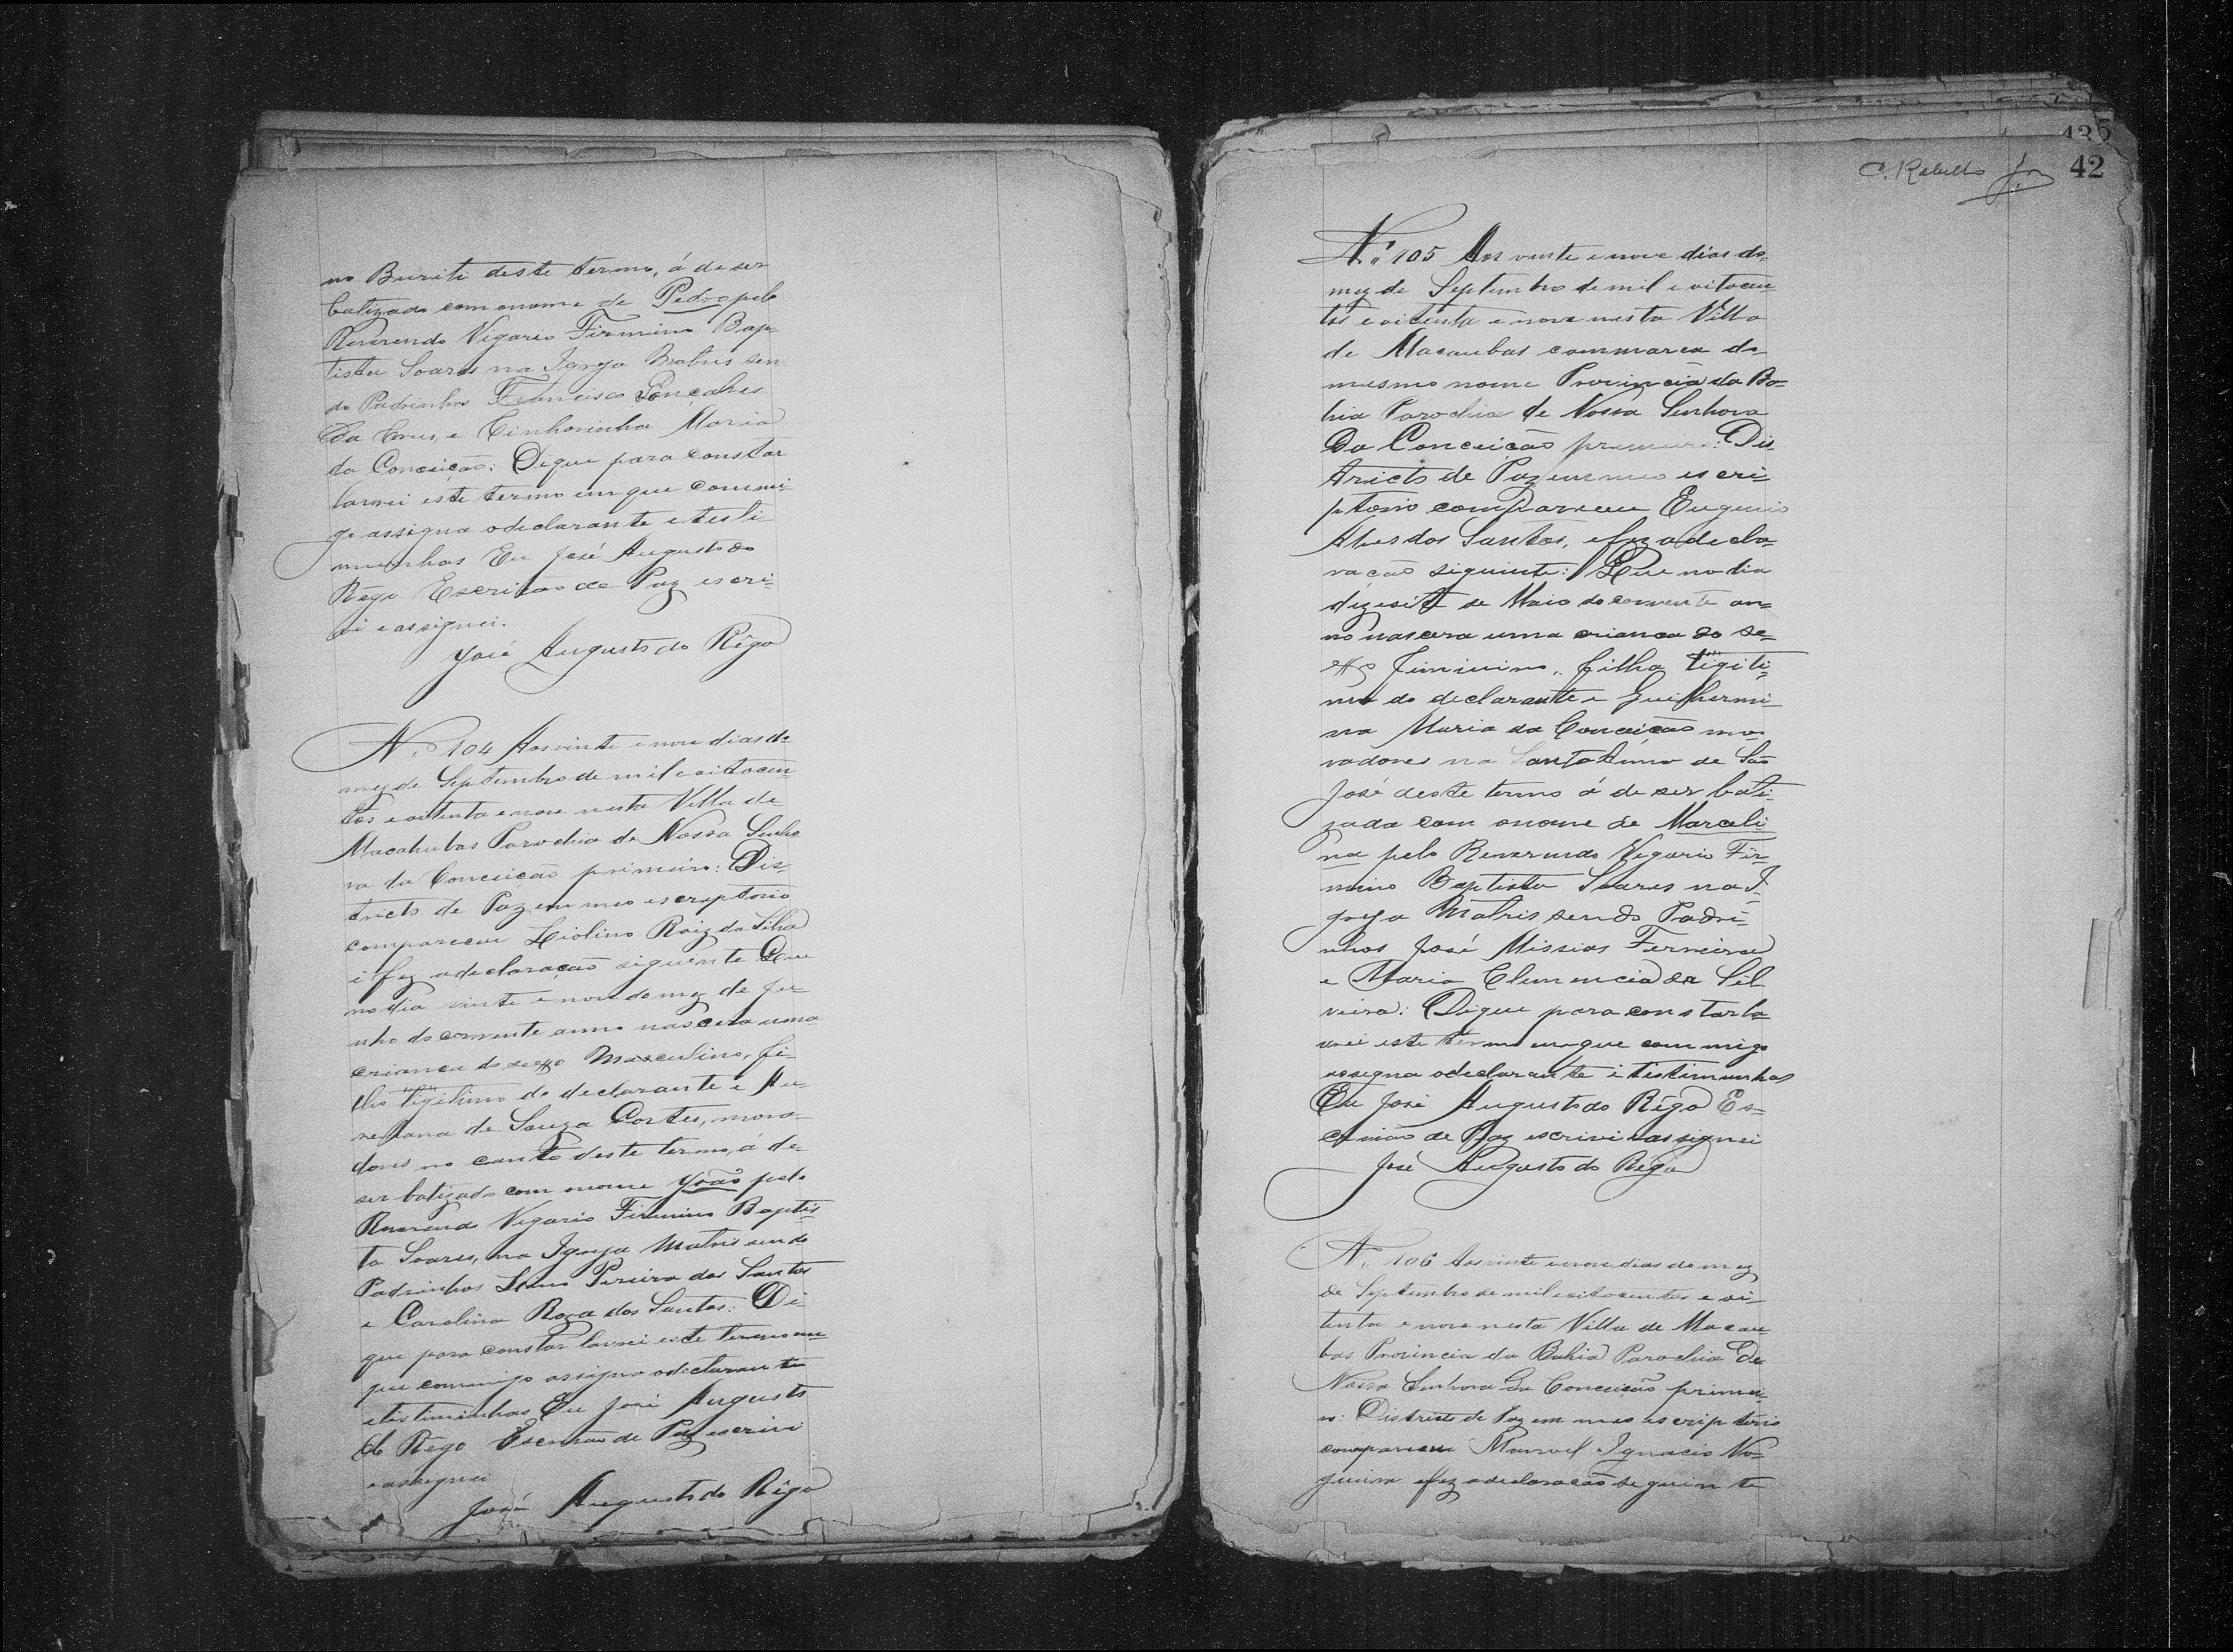 no Buriti deste termo, á de ser
batizado com o nome de Pedro pelo
Reverendo Vigario Firmino Bap-
tista Soares na Igreja Matris sen
do Padrinhos Francisco Gonçalves
Da Crus, e Sinhorinha Maria
da Conceição: Dique para constar
larvei este termo em que commi-
go assigna o declarante e testi-
munhas Eu José Augusto do
Rêgo Escrivão de Paz escri-
vi e assignei.
José Augusto do Rêgo
N.º 104 Aos vinte e nove dias do
mez de Septembro de mil e oitocen
tos e oitenta e nove nesta Villa de
Macahubas Parochia de Nossa Senho
ra da Conceição primeiro: Dis-
tricto de Paz em meo escriptorio
compareceu Liolino Roiz da Silva
i fez a declaração siguinte Que
no dia vinte e nove do mez de Ju-
nho do corrente anno nascera uma
criança do sexo Masculino, fi-
lho ligitimo do declarante e
de Souza Cortes, mora-
dores no canto deste termo, á de
ser batizado com nome João pelo
Reverendo Vigario Firmino Baptis-
ta Soares, na Igreja Matris sendo
Padrinhos Pereira dos Santos
e Carolina Roza dos Santos: Di-
que para constar larvei este termo em
que commigo assigna o declarante
e testimunhas Eu José Augusto
do Rêgo Escrivão de Paz escrivi
e assignei
José Augusto do Rêgo
435
C. Rabello Jor 42
N.º 105 Aos vinte e nove dias do
mez de Septembro de mil e oitocen
tos e oitenta e nove nesta Villa
de Macaubas commarca do
mesmo nome Provincia da Ba-
hia Parochia de Nossa Senhora
Da Conceição primeiro: Dis-
tricto de Paz em meo escri-
ptorio compareceu Eugenio
Alves dos Santos, e fez a decla-
ração siguinte: Que no dia
dizesite de Maio do corrente an-
no nascera uma criança do se-
xo Feminino, filha ligiti-
ma do declarante e Guilhermi-
na Maria da Conceição mo-
radores na Santo Anna de São
José deste termo á de ser bati-
zada com o nome de Marceli-
na pelo Reverendo Vegario Fir-
mino Baptista Soares na I-
greja Matris sendo Padri-
nhos José Missias Ferreira
e Maria Clemencia da Sil
veira: Dique para constar la-
vrei este termo em que commigo
assigna o declarante i tistimunhas
Eu José Augusto do Rêgo Es-
crivão de Paz escrivi e assignei
José Augusto do Rêgo
N.º 106 Aos vinte e nove dias do mez
de Septembro de mil e oitocentos e oi-
tenta e nove nesta Villa de Macau-
bas Provincia da Bahia Parochia De
Nossa Senhora Da Conceição primei-
ro: Districto de Paz em meo escriptorio
compareceu Manoel Ignacio No-
gueira e fez a declaração seguinte